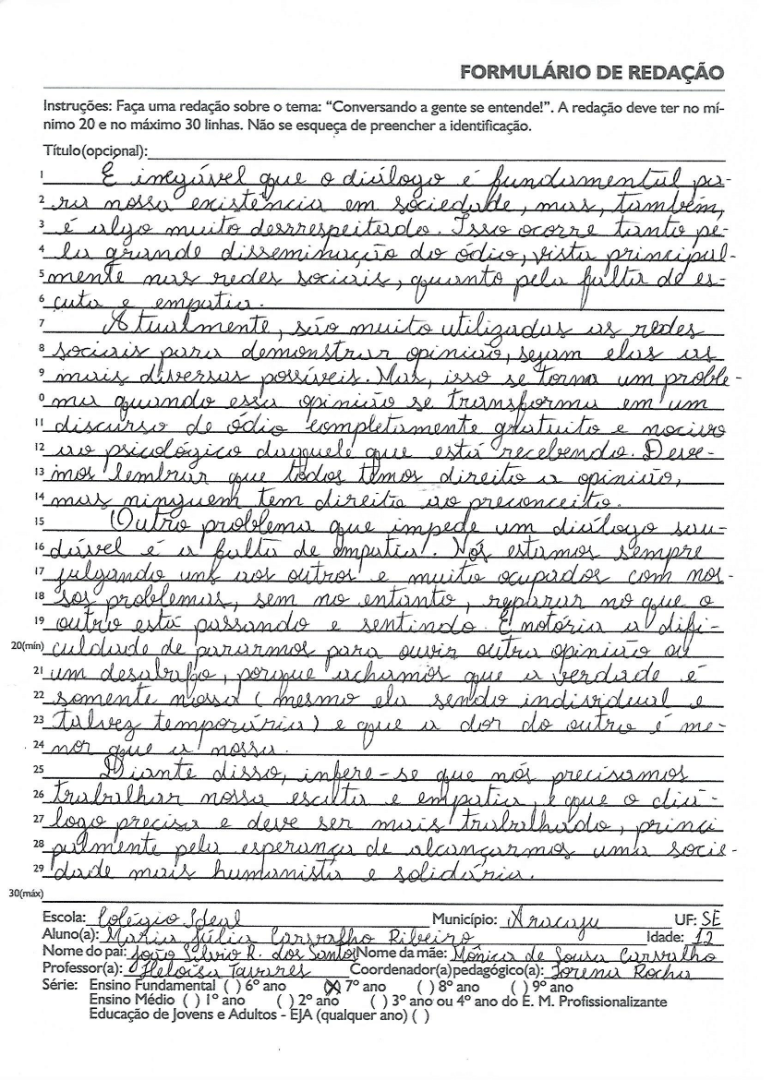 FORMULÁRIO DE REDAÇÃO
Instruções: Faça uma redação sobre o tema: “Conversando a gente se entende!”. A redação deve ter no mí-
nimo 20 e no máximo 30 linhas. Não se esqueça de preencher a identificação.
Título(opcional):
1 É inegável que o diálogo é fundamental pa-
2 ra nossa existência em sociedade, mas, também,
3 é algo muito desrrespeitado. Isso ocorre tanto pe-
4 la grande disseminação do ódio, vista principal-
5 mente nas redes sociais, quanto pela falta de es-
6 cuta e empatia.
7 Atualmente, são muito utilizadas as redes
8 sociais para demonstrar opinião, sejam elas as
9 mais diversas possíveis. Mas, isso se torna um proble-
0 ma quando essa opinião se transforma em um
11 discurso de ódio completamente gratuito e nocivo
12 ao psicológico daquele que está recebendo. Deve-
13 mos lembrar que todos temos direito a opinião,
14 mas ninguem tem direito ao preconceito.
15 Outro problema que impede um diálogo sau-
16 dável é a falta de empatia. Nós estamos sempre
17 julgando uns aos outros e muito ocupados com nos-
18 sos problemas, sem no entanto, reparar no que o
19 outro está passando e sentindo. É notória a difi-
20(mín) culdade de pararmos para ouvir outra opinião ou
21 um desabafo, porque achamos que a verdade é
22 somente nossa (mesmo ela sendo individual e
23 talvez temporária) e que a dor do outro é me-
24 nor que a nossa.
25 Diante disso, infere-se que nós precisamos
26 trabalhar nossa escuta e empatia, e que o diá-
27 logo precisa e deve ser mais trabalhado, princi
28 palmente pela esperança de alcançarmos uma socie-
29 dade mais humanista e solidária.
30(máx)
Escola: Colégio Ideal Município: Aracaju UF: SE
Aluno(a): Maria Júlia Carvalho Ribeiro Idade: 12
Nome do pai: João Silvio R. dos Santos Nome da mãe: Mônica de Sousa Carvalho
Professor(a): Heloísa Tavares Coordenador(a)pedagógico(a): Lorena Rocha
Série: Ensino Fundamental ( ) 6º ano (X) 7º ano ( ) 8º ano ( ) 9º ano
Ensino Médio ( ) 1º ano ( ) 2º ano ( ) 3º ano ou 4º ano do E. M. Profissionalizante
Educação de Jovens e Adultos - EJA (qualquer ano) ( )